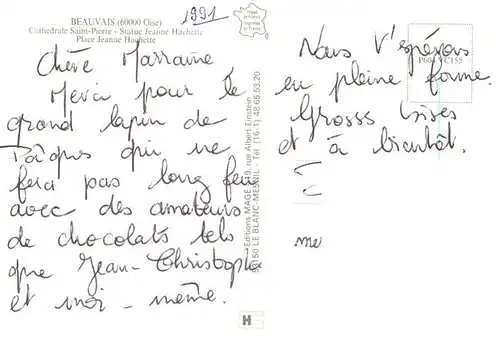 BEAUVAIS (60000 Oise)
Cathédrale Saint-Pierre - Statue Jeanne Hachette
Place Jeanne Hachette
1991
Chère Marraine
Merci pour le
grand lapin de
Pâques qui ne
fera pas long feu
avec des amateurs
de chocolats tels
que Jean-Christophe
et moi-même.
Editions MAGE - 49, rue Albert Einstein
93150 LE BLANC-MESNIL - Tél. (16-1) 48.65.53.20
Nous t'espérons
en pleine forme.
Grosss bises
et à bientôt.
me